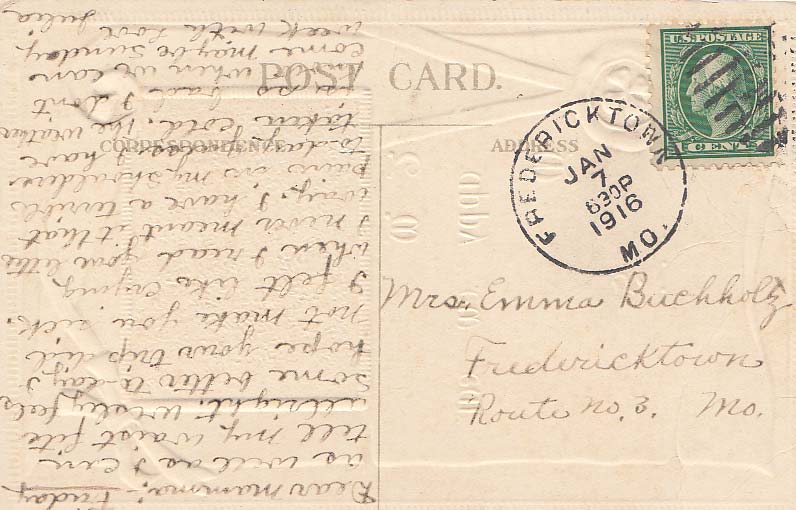 POST CARD.
CORRESPONDENCE
ADDRESS
U.S. POSTAGE
1 CENT 1
FREDERICKTOWN
JAN
7
630P
1916
MO.
Mrs. Emma Buchholz
Fredericktown
Route no. 3. Mo.
Dear Mamma:- Friday
as well as I can
tell my waist fits
allright. Wesley feels
some better to-day. I
hope your trip did
not make you sick.
I felt like crying
when I read your letter
I never meant it that
way. I have a terrible
pain in my shoulders
to-day guess I have
taken cold. The weather
is so bad I don't
know when we can
come maybe Sunday
week with love Julia